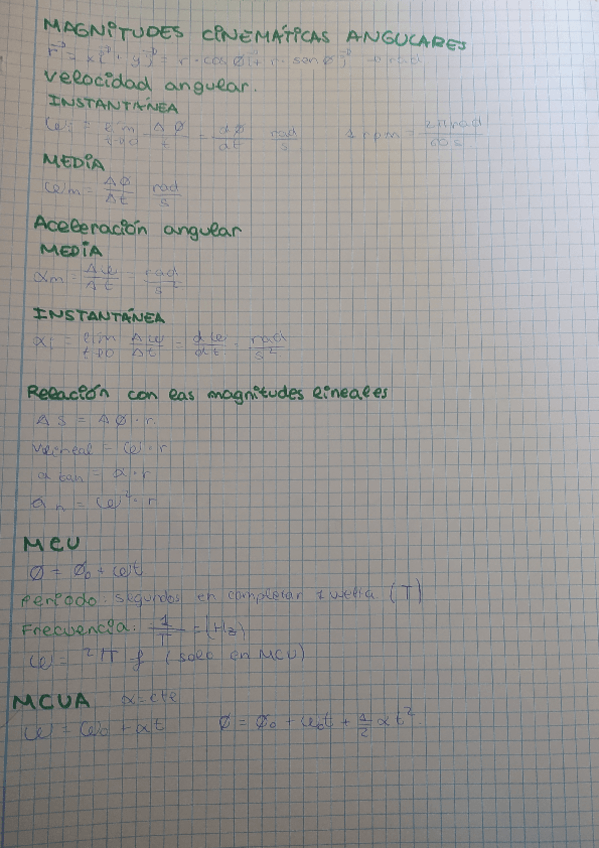 MAGNITUDES CINEMÁTICAS ANGULARES
r⃗ = x i⃗ + y j⃗ = r · cos Ø i⃗ + r · sen Ø j⃗
velocidad angular.
INSTANTÁNEA
ωi = lim t→0 ΔØ/t = dØ/dt rad/s 1 rpm = 2π rad/60 s
MEDIA
ωm = ΔØ/Δt rad/s
Aceleración angular
MEDIA
αm = Δω/Δt = rad/s²
INSTANTÁNEA
αi = lim t→0 Δω/Δt = dω/dt = rad/s²
Relación con las magnitudes lineales
ΔS = ΔØ · r
vlineal = ω · r
a tan = α · r
an = ω² · r
MCU
Ø = Ø0 + ωt
Período: segundos en completar 1 vuelta (T)
Frecuencia: 1/T = (Hz)
ω = 2π · f (solo en MCU)
MCUA α = cte
ω = ω0 + αt Ø = Ø0 + ω0t + 1/2 αt²